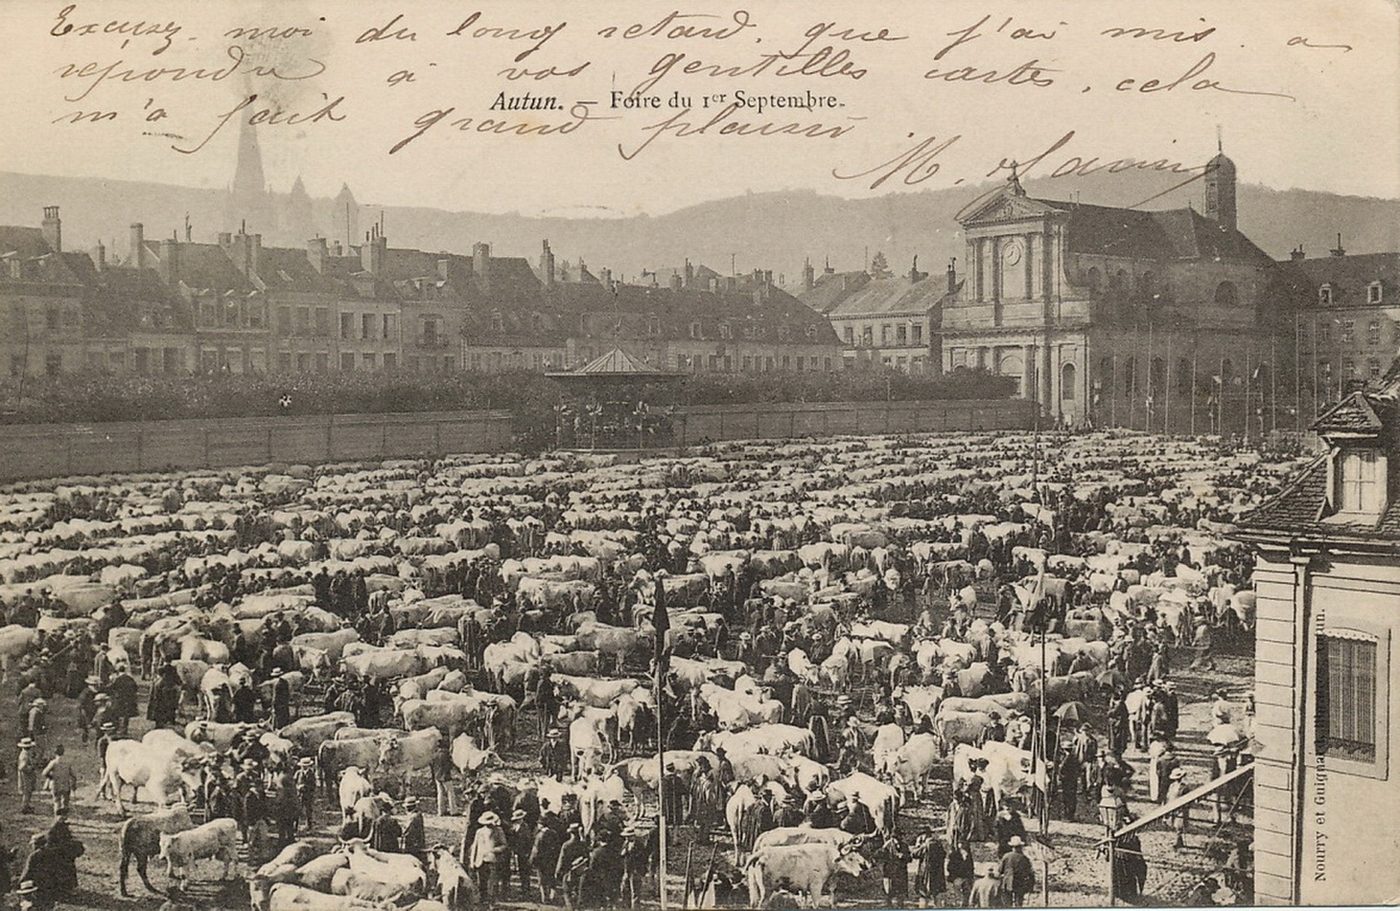 Excusez-moi du long retard, que j'ai mis a
répondre à vos gentilles cartes, cela
Autun. — Foire du 1er Septembre.
m'a fait grand plaisir
Nourry et Guignard, Autun.